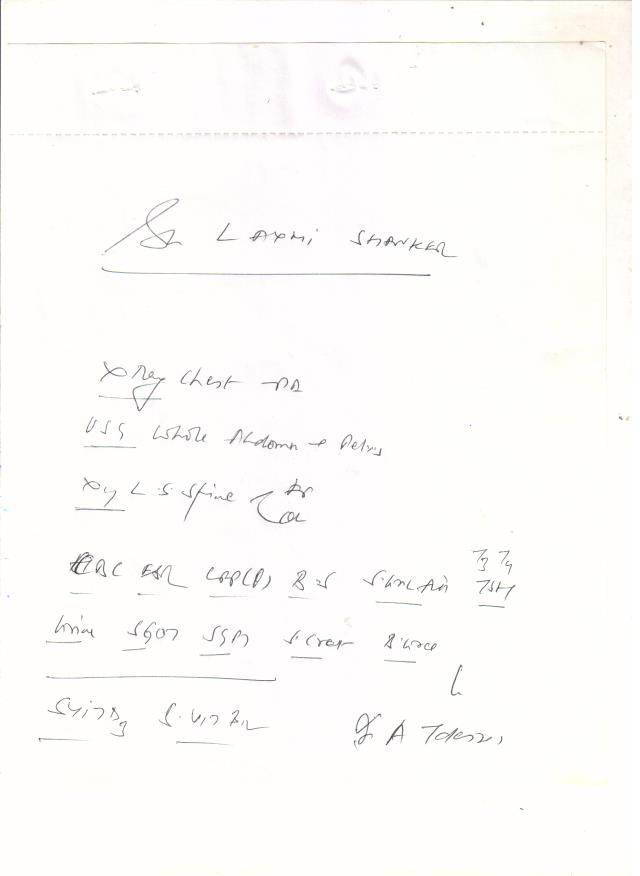 Sr LAXMI SHANKER
X Ray Chest PA
USG Whole Abdomen + Pelvis
Xry L.S. Spine AP
CBC ESR CRP(Q) B-S S. Uric Acid T3 T4 TSH
Urine SGOT SGPT S. Creat B. Urea
S. Vit D3 S. Vit B12